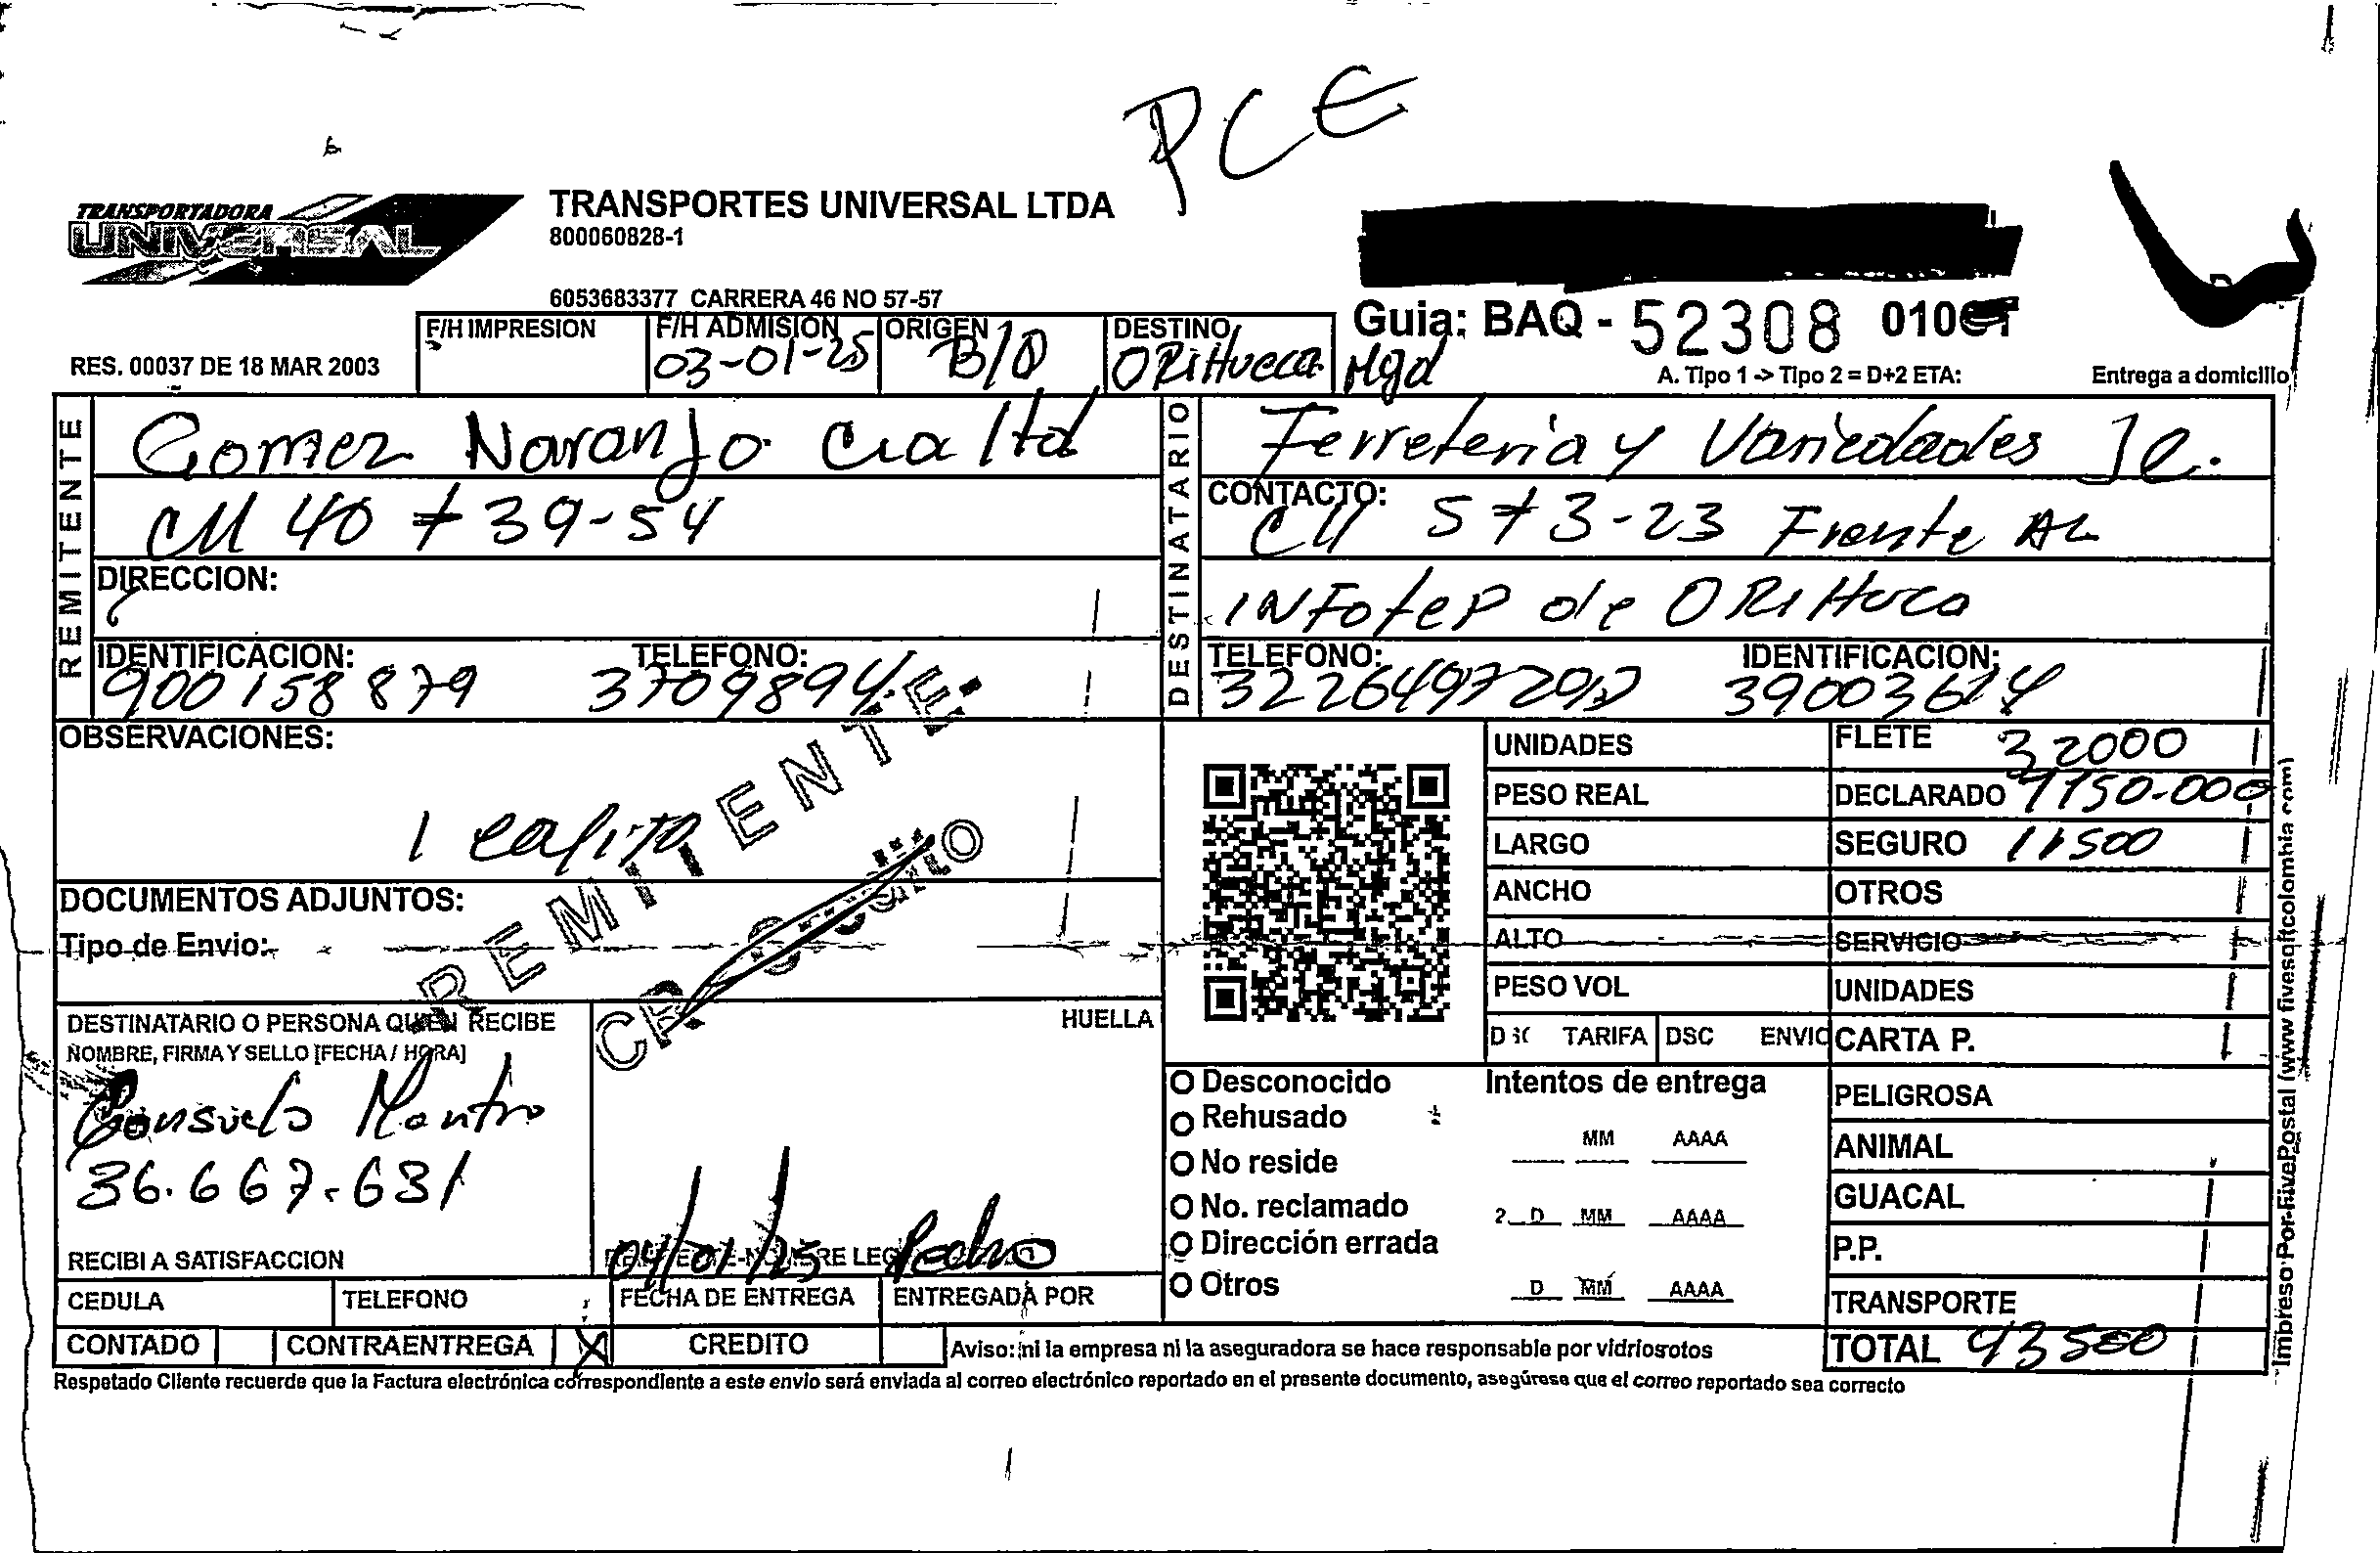 PCE
TRANSPORTADORA
UNIVERSAL
TRANSPORTES UNIVERSAL LTDA
800060828-1
6053683377 CARRERA 46 NO 57-57
Guia: BAQ - 52308 010
RES. 00037 DE 18 MAR 2003
F/H IMPRESION
F/H ADMISION
03-01-25
ORIGEN
B/Q
DESTINO
ORiHueca Mgd
A. Tipo 1 -> Tipo 2 = D+2 ETA:
Entrega a domicilio
REMITENTE
Gomez Naranjo Cia ltd
Cll 40 # 39-54
DIRECCION:
IDENTIFICACION:
900158879
TELEFONO:
3709894
DESTINATARIO
Ferreteria y Variedades Je.
CONTACTO:
Cll 5 # 3-23 Frente AL
INFotep de ORiHueca
TELEFONO:
IDENTIFICACION:
OBSERVACIONES:
1 cajita
REMITENTE
DOCUMENTOS ADJUNTOS:
Tipo de Envio:
DESTINATARIO O PERSONA QUIEN RECIBE
NOMBRE, FIRMA Y SELLO [FECHA / HORA]
Consuelo
36.667.631
RECIBI A SATISFACCION
HUELLA
04/01/25 Pedro
CEDULA
TELEFONO
FECHA DE ENTREGA
ENTREGADA POR
CONTADO
CONTRAENTREGA X
CREDITO
UNIDADES
PESO REAL
LARGO
ANCHO
ALTO
PESO VOL
TARIFA DSC
FLETE 32000
DECLARADO 1150.000
SEGURO 11500
OTROS
SERVICIO
UNIDADES
CARTA P.
PELIGROSA
ANIMAL
GUACAL
P.P.
TRANSPORTE
TOTAL 43500
O Desconocido
O Rehusado
O No reside
O No. reclamado
O Dirección errada
O Otros
Intentos de entrega
MM AAAA
2 D MM AAAA
D MM AAAA
Aviso: ni la empresa ni la aseguradora se hace responsable por vidrios rotos
Respetado Cliente recuerde que la Factura electrónica correspondiente a este envio será enviada al correo electrónico reportado en el presente documento, asegúrese que el correo reportado sea correcto
Impreso Por FivePostal (www fivesoftcolombia com)